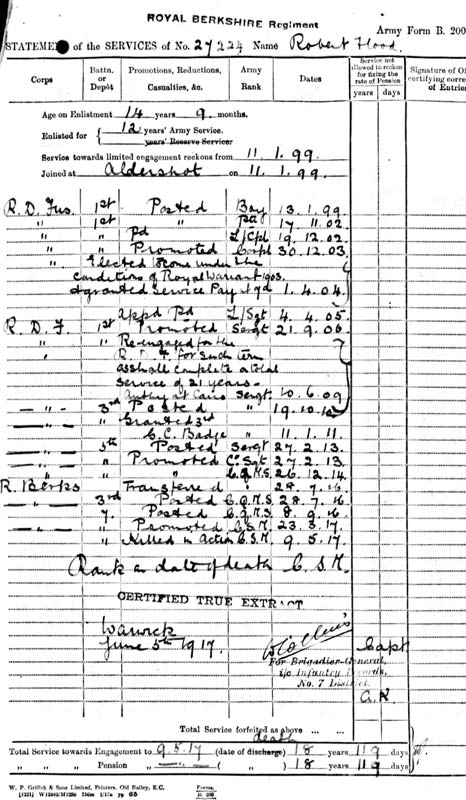 ROYAL BERKSHIRE Regiment
Army Form B. 200
STATEMENT of the SERVICES of No. 27224 Name Robert Flood.
Corps
Battn. or Depôt
Promotions, Reductions, Casualties, &c.
Army Rank
Dates
Service not allowed to reckon for fixing the rate of Pension
years days
Signature of Of
certifying corre
of Entrie
Age on Enlistment 14 years 9 months.
Enlisted for { 12 years' Army Service.
years' Reserve Service.
Service towards limited engagement reckons from 11. 1. 99.
Joined at Aldershot on 11. 1. 99.
R. D. Fus. 1st Posted Boy 13. 1. 99
" 1st " Pte 17. 11. 02.
" " Pd L/Cpl 19. 12. 02.
" " Promoted Corpl 30. 12. 03.
" Elected to come under the
conditions of Royal Warrant 1903.
& granted Service Pay at 7d 1. 4. 04.
appd Pd L/Sgt 4. 4. 05.
R. D. F. 1st Promoted Sergt 21. 9. 06.
" " Re-engaged for the
" R. D. F. for such term
as shall complete a total
service of 21 years -
Authy at Cairo Sergt. 10. 6. 09
— " — 3rd Posted " 19. 10. 10
— " — " Granted 3rd
G. C. Badge " 11. 1. 11.
— " — 5th Posted Sergt 27. 2. 13.
— " — " Promoted C. Sgt 27. 2. 13.
— " — " " C.Q.M.S. 26. 12. 14.
R. Berks Transferred " 28. 7. 16.
— " — 3rd Posted C.Q.M.S. 28. 7. 16.
— " — 7. Posted C.Q.M.S. 8. 9. 16.
— " — " Promoted C.S.M. 23. 3. 17.
" Killed in Action C.S.M. 9. 5. 17.
Rank on date of death C.S.M.
CERTIFIED TRUE EXTRACT
Warwick
June 5th 1917.
Capt
For Brigadier-General,
i/c Infantry Records,
No. 7 District.
Total Service forfeited as above ... ...
death
Total Service towards Engagement to 9.5.17 (date of discharge) 18 years 119 days
" " " Pension — " — ( " ) 18 years 119 days
W. P. Griffith & Sons Limited, Printers, Old Bailey, E.C.
Forms
B. 200